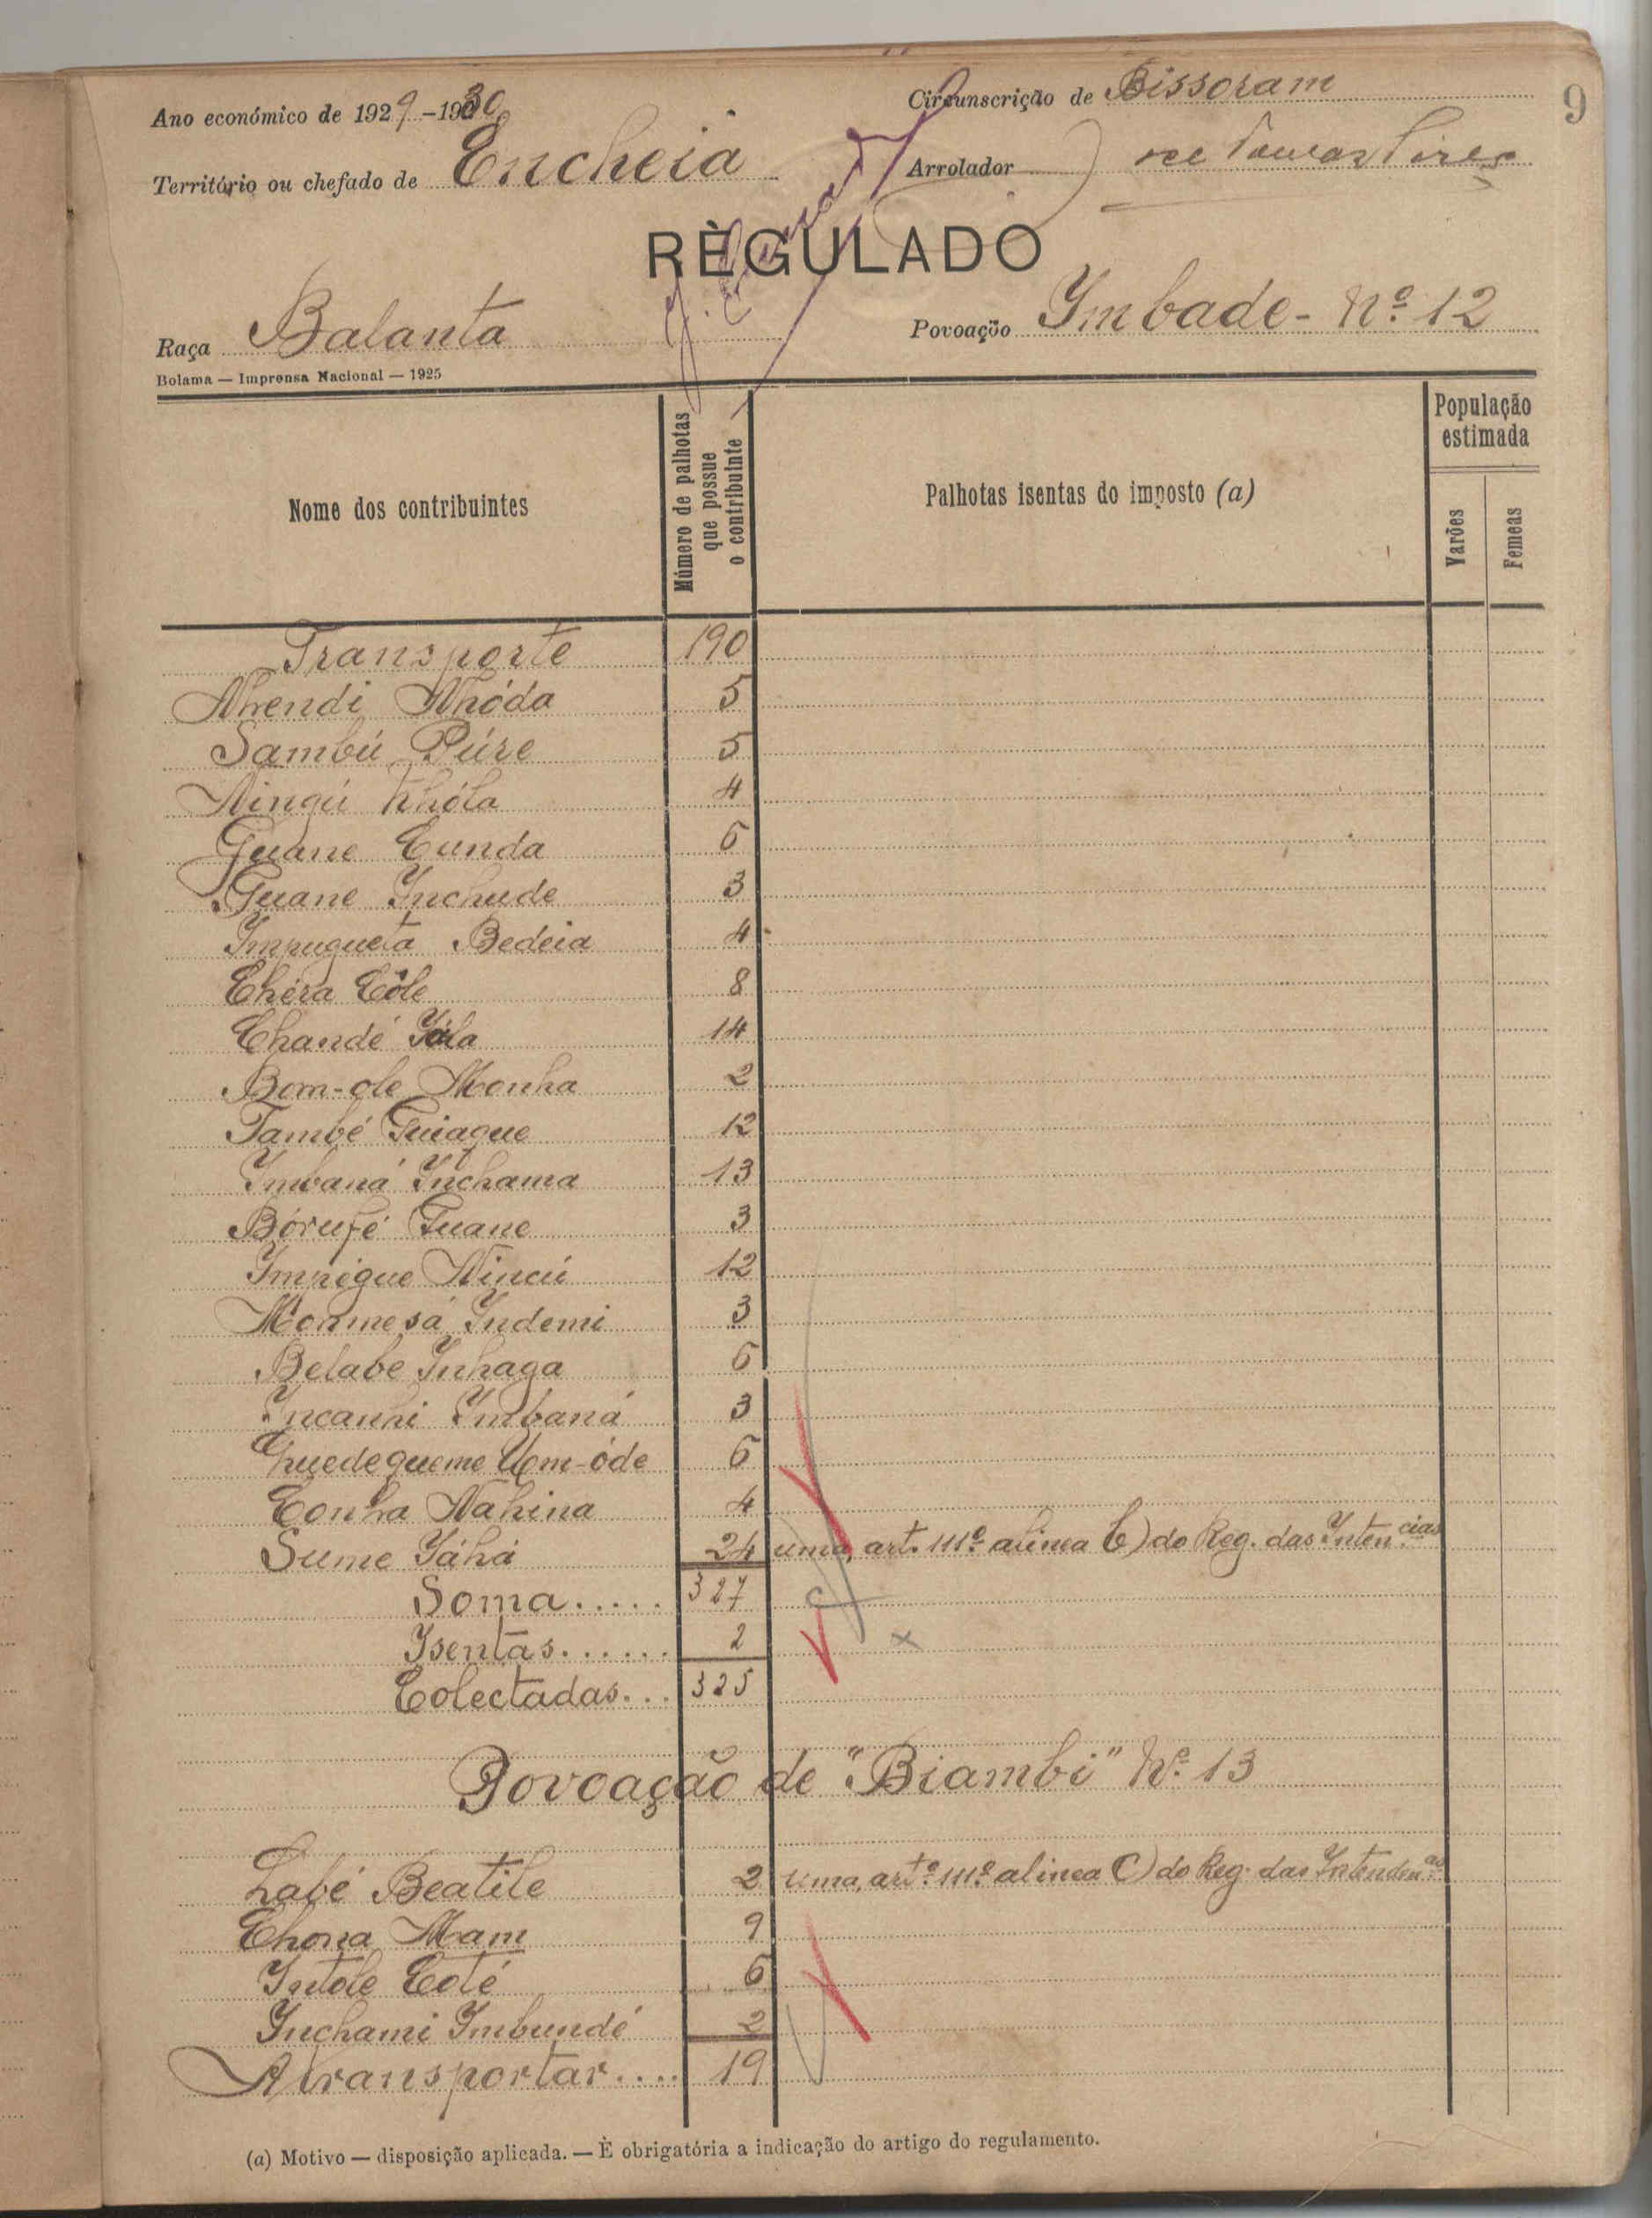 9
Ano económico de 1929-1930
Circunscrição de Bissoram
Território ou chefado de Encheia
Arrolador
RÈGULADO
Raça Balanta
Povoação Ymbade - Nº 12
Bolama — Imprensa Nacional — 1925
Nome dos contribuintes
Número de palhotas que possue o contribuinte
Palhotas isentas do imposto (a)
População estimada
Varões
Femeas
Transporte 190
Nhendi Nhóda 5
Sambú Púre 5
Ningú Nhóla 4
Guane Cunda 6
Guane Ynchude 3
Ympugueta Bedeia 4
Chéra Côle 8
Chandé Yála 14
Bom-ole Monha 2
També Guiague 12
Ymbaná Ynchama 13
Bórufé Guane 3
Ymrigue Nincú 12
Monmesá Yndemi 3
Belabe Ynhaga 6
Yncanhi Ymbaná 3
Quedequeme Um-óde 6
Conha Nahina 4
Sume Yáhá 24 uma, artº 111º alinea C) do Reg. das Inten.cias
Soma..... 327
Ysentas...... 2
Colectadas... 325
Povoação de "Biambi" Nº 13
Labé Beatile 2 uma, artº 111º alinea C) do Reg. das Intenden.as
Chona Mam 9
Yntole Coté 6
Ynchami Ymbundé 2
A transportar.... 19
(a) Motivo — disposição aplicada. — È obrigatória a indicação do artigo do regulamento.